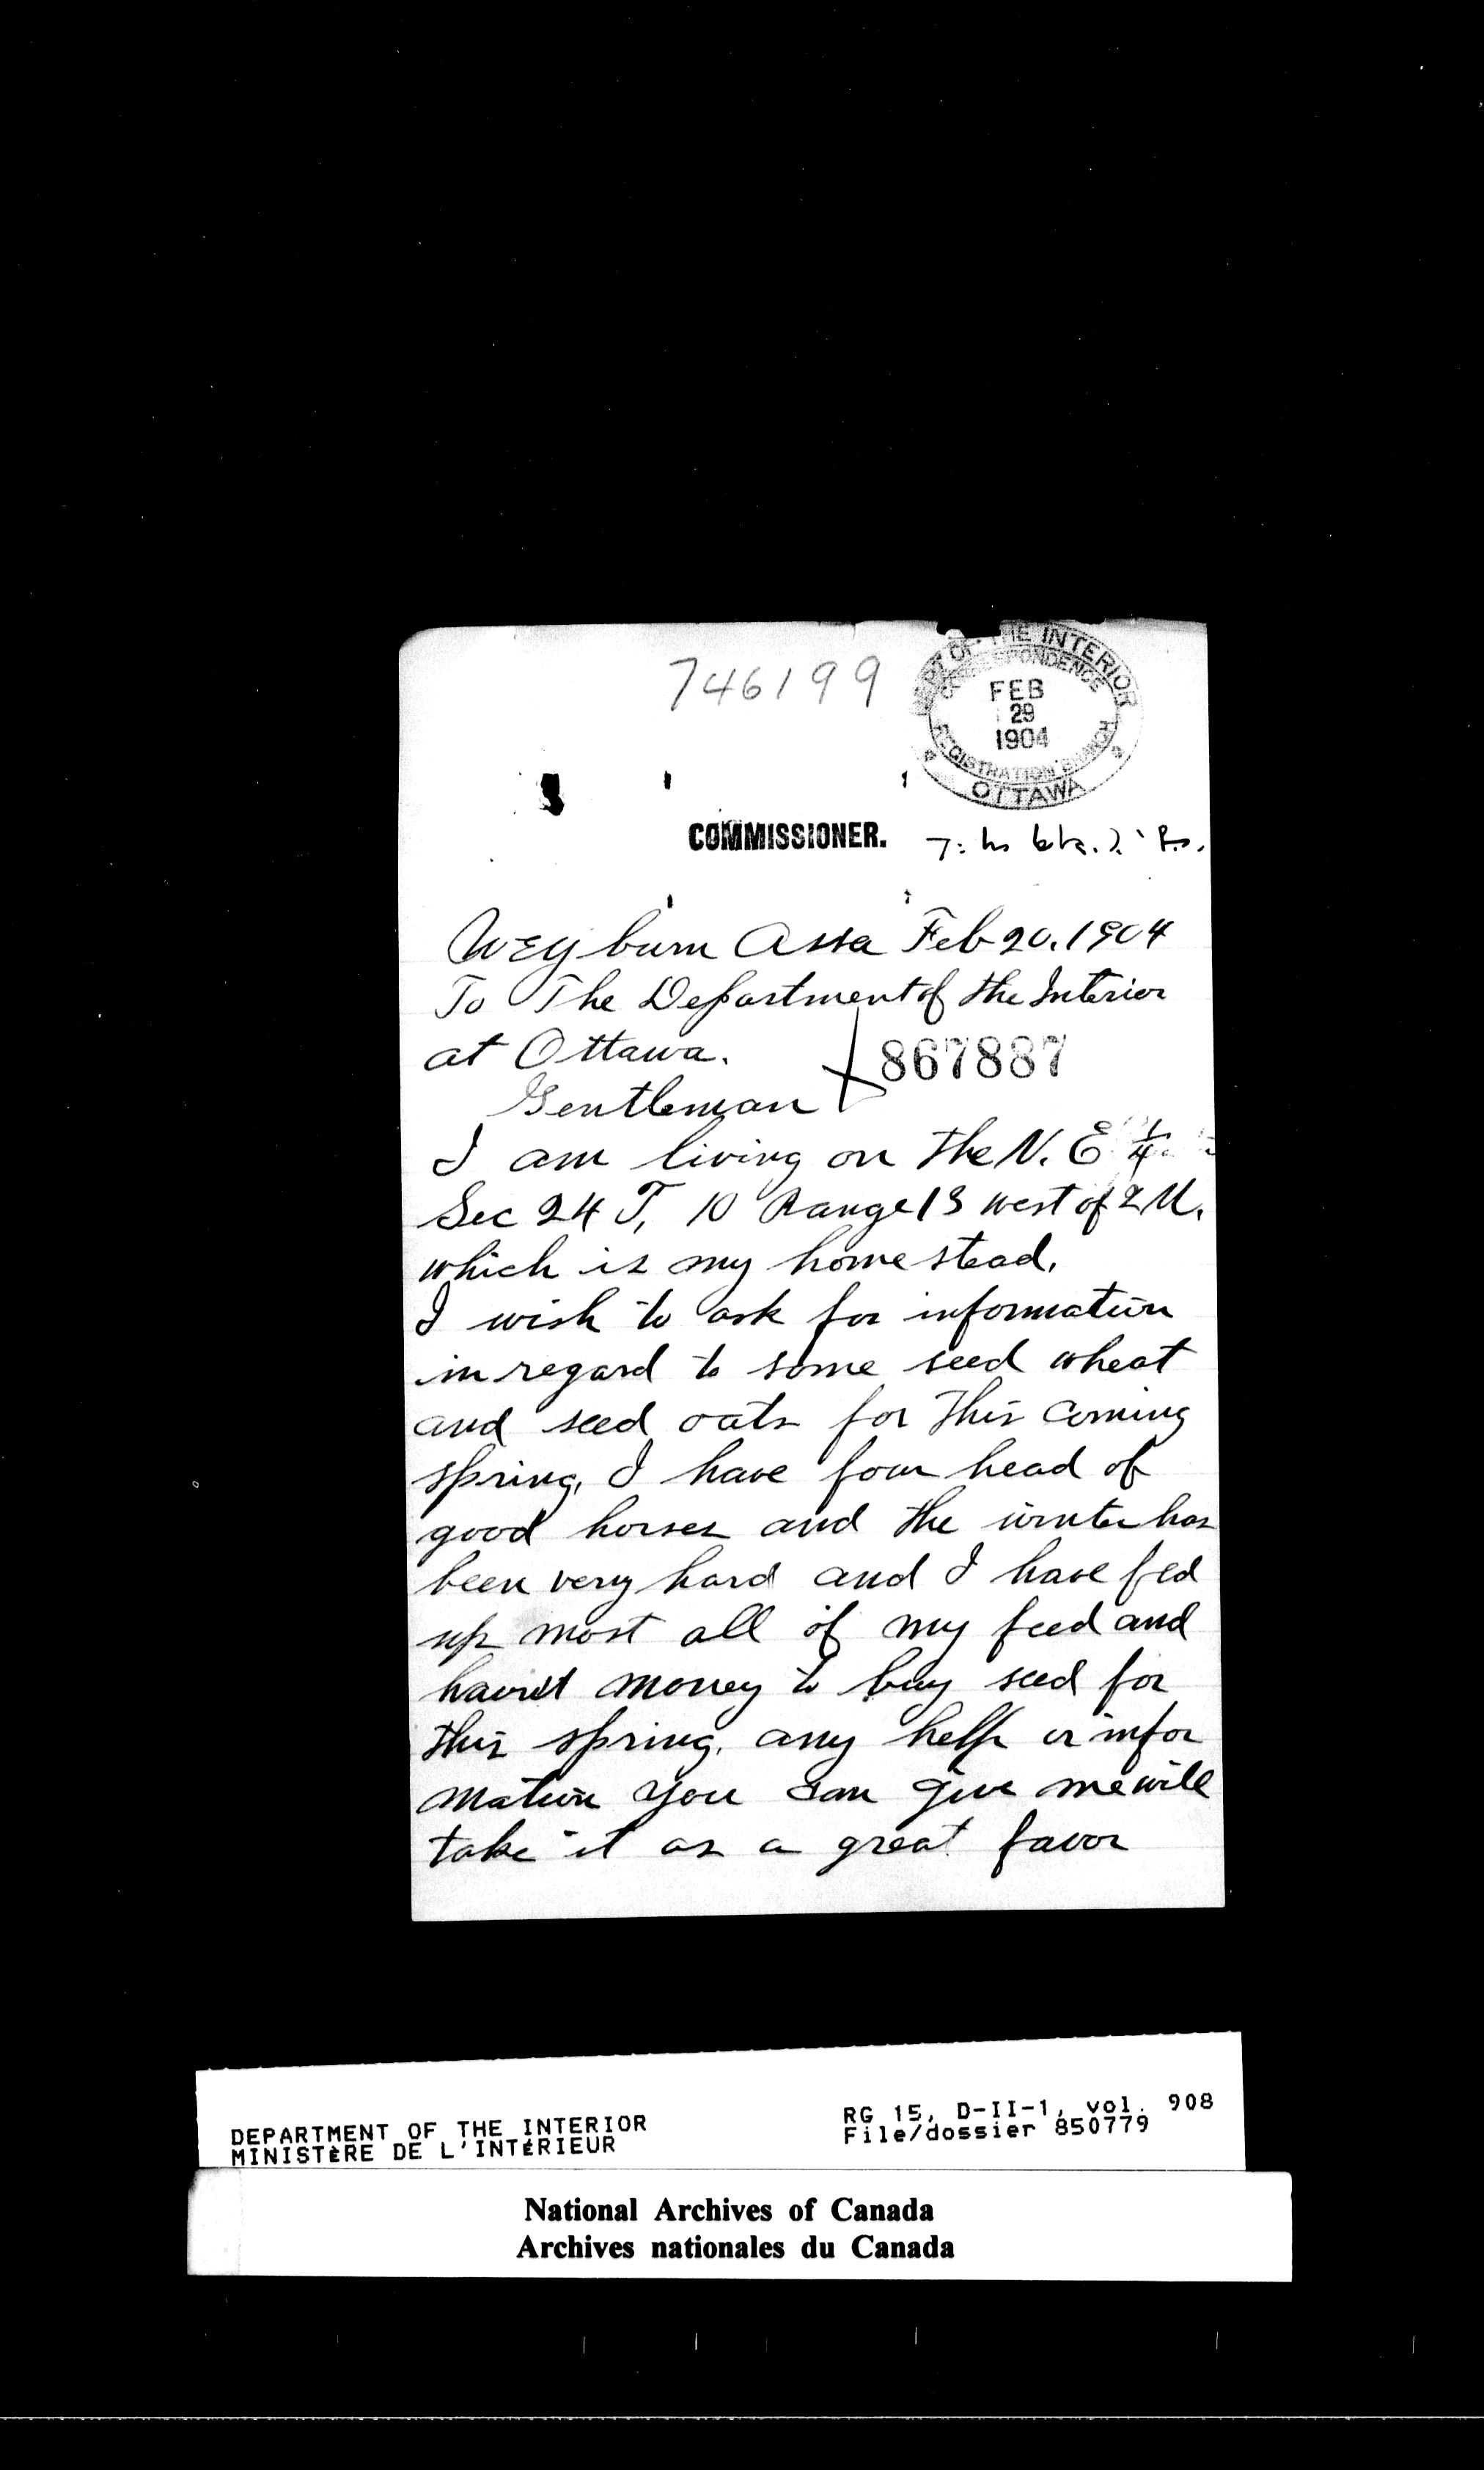 746199
DEPT OF THE INTERIOR
CORRESPONDENCE
FEB
29
1904
REGISTRATION BRANCH
OTTAWA
COMMISSIONER.
Weyburn Assa Feb 20. 1904
To The Department of the Interior
at Ottawa.
867887
Gentleman
I am living on the N. E 1/4.
Sec 24 T, 10 Range 13 west of 2 M.
which is my homestead.
I wish to ask for information
in regard to some seed wheat
and seed oats for this coming
spring, I have four head of
good horses and the winter has
been very hard and I have fed
up most all of my feed and
havnt money to buy seed for
this spring. any help or infor
mation you can give me will
take it as a great favor
DEPARTMENT OF THE INTERIOR
MINISTÈRE DE L'INTÉRIEUR
RG 15, D-II-1, vol. 908
File/dossier 850779
National Archives of Canada
Archives nationales du Canada